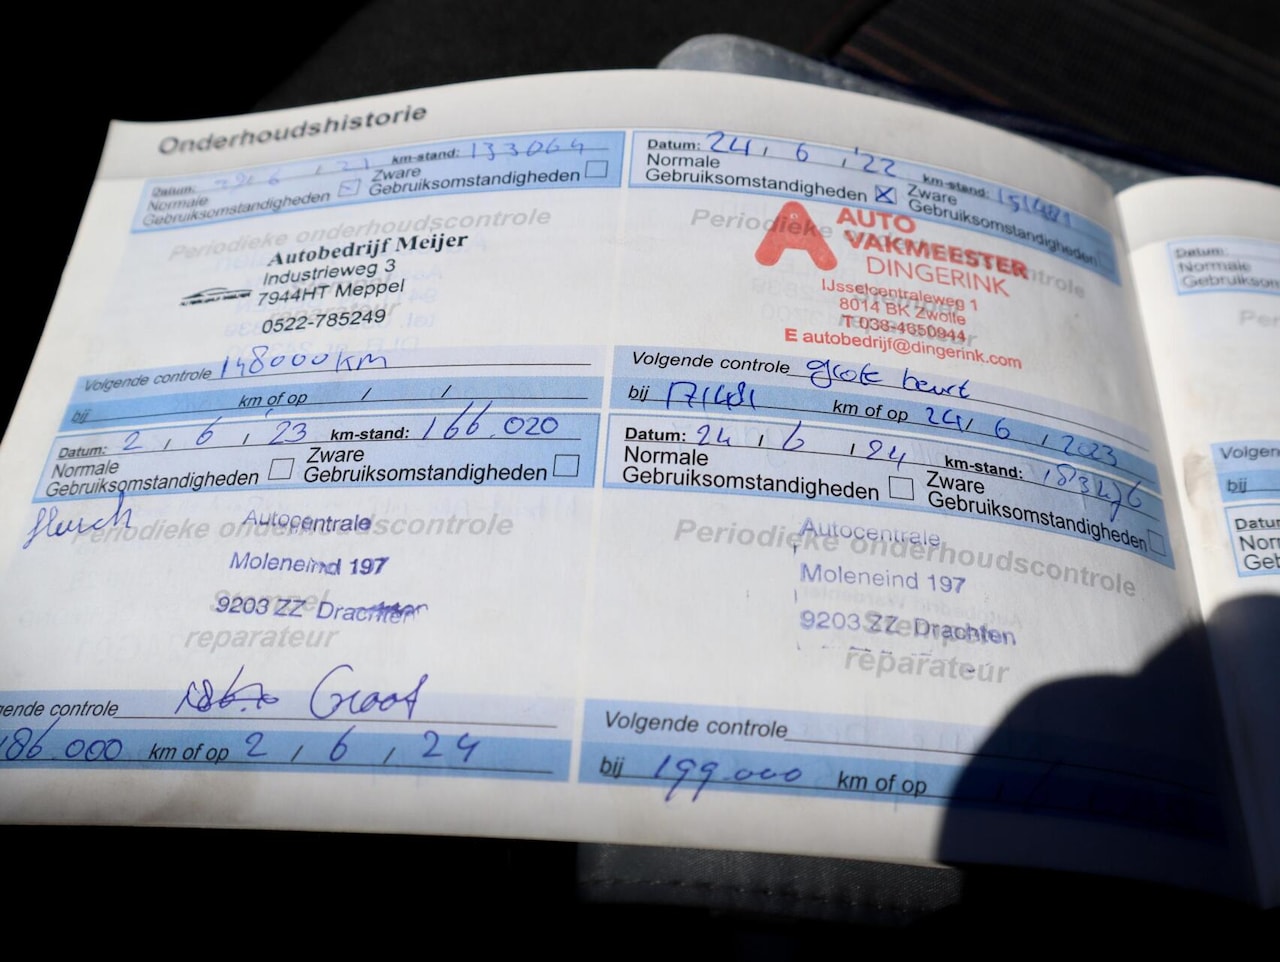 Onderhoudshistorie
Datum: 6 , 21 km-stand: 133064
Normale Gebruiksomstandigheden Zware Gebruiksomstandigheden
Periodieke onderhoudscontrole
Autobedrijf Meijer
Industrieweg 3
7944HT Meppel
reparateur
0522-785249
Volgende controle 148000 km
bij km of op / /
Datum: 24 , 6 , '22 km-stand:
Normale Gebruiksomstandigheden Zware Gebruiksomstandigheden
Periodieke onderhoudscontrole
A AUTO
VAKMEESTER
DINGERINK
IJsselcentraleweg 1
Stempel
8014 BK Zwolle
reparateur
T 038-4650944
E autobedrijf@dingerink.com
Volgende controle grote beurt
bij 171481 km of op 24 , 6 , 2023
Datum: 2 , 6 , '23 km-stand: 166.020
Normale Gebruiksomstandigheden Zware Gebruiksomstandigheden
Periodieke onderhoudscontrole
Autocentrale
Moleneind 197
Stempel
9203 ZZ Drachten
reparateur
Volgende controle Groot
186.000 km of op 2 , 6 , 24
Datum: 24 , 6 , 24 km-stand: 183476
Normale Gebruiksomstandigheden Zware Gebruiksomstandigheden
Periodieke onderhoudscontrole
Autocentrale
Moleneind 197
9203 ZZ Drachten
Stempel
reparateur
Volgende controle
bij 199.000 km of op
Datum:
Normale
Gebruiksom
Pe
Volgen
bij
Datu
Norr
Geb